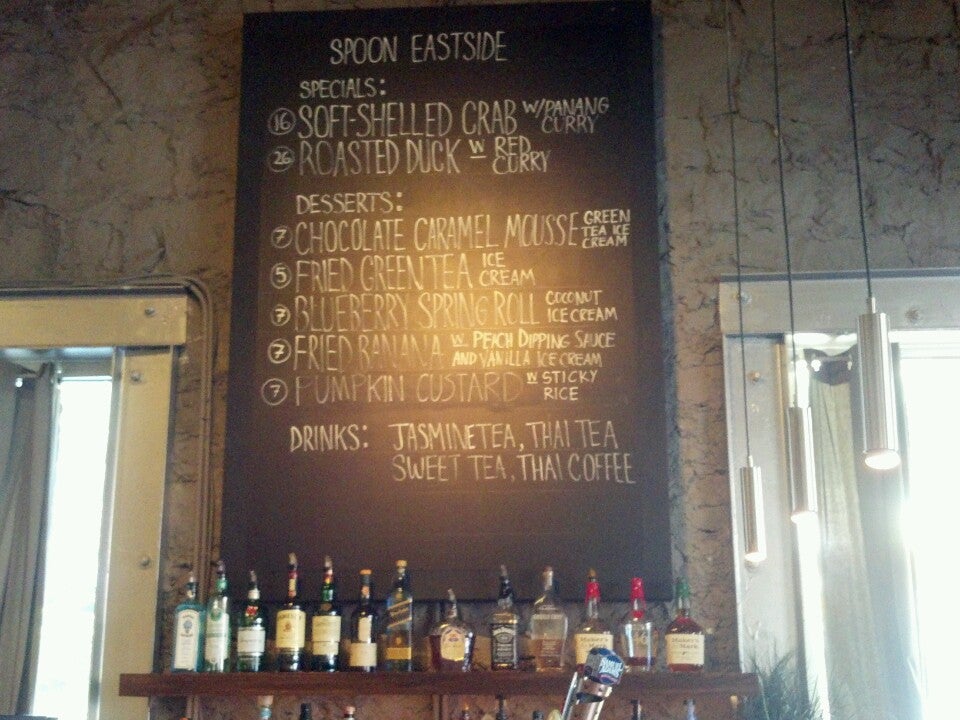 SPOON EASTSIDE
SPECIALS:
16 SOFT-SHELLED CRAB W/PANANG CURRY
26 ROASTED DUCK W RED CURRY
DESSERTS:
7 CHOCOLATE CARAMEL MOUSSE GREEN TEA ICE CREAM
5 FRIED GREEN TEA ICE CREAM
7 BLUEBERRY SPRING ROLL COCONUT ICE CREAM
7 FRIED BANANA W. PEACH DIPPING SAUCE AND VANILLA ICE CREAM
7 PUMPKIN CUSTARD W STICKY RICE
DRINKS: JASMINE TEA, THAI TEA
SWEET TEA, THAI COFFEE
Maker's Mark